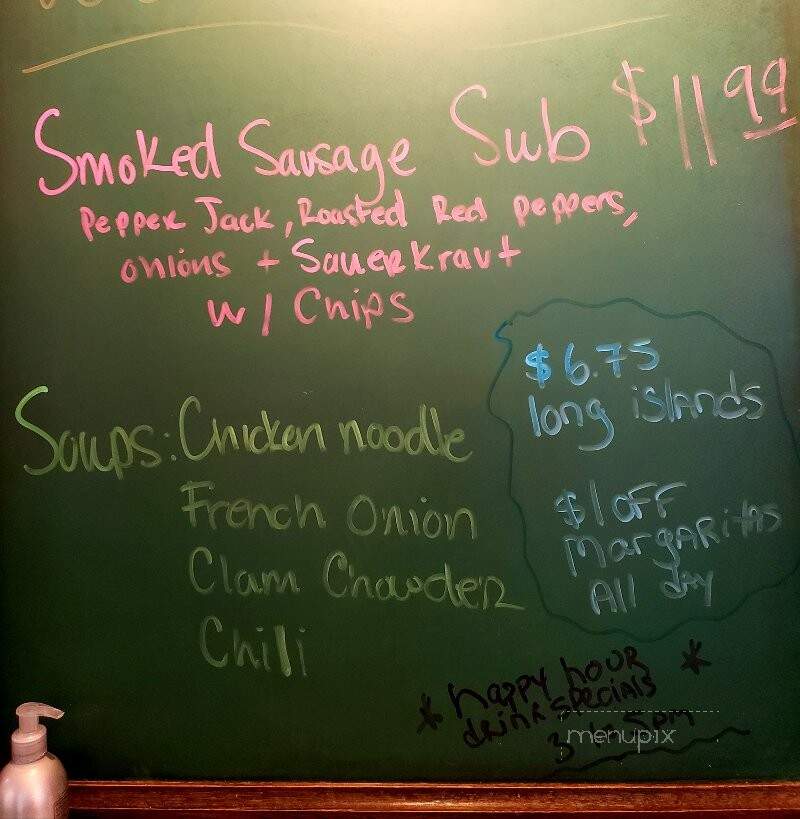 Smoked Sausage Sub $11.99
Pepper Jack, Roasted Red peppers,
onions + Sauerkraut
w/ Chips
$6.75
long islands
Soups: Chicken noodle
French Onion
Clam Chowder
Chili
$1 OFF
Margaritas
All day
* happy hour *
drink specials
3 to 5pm
menupix